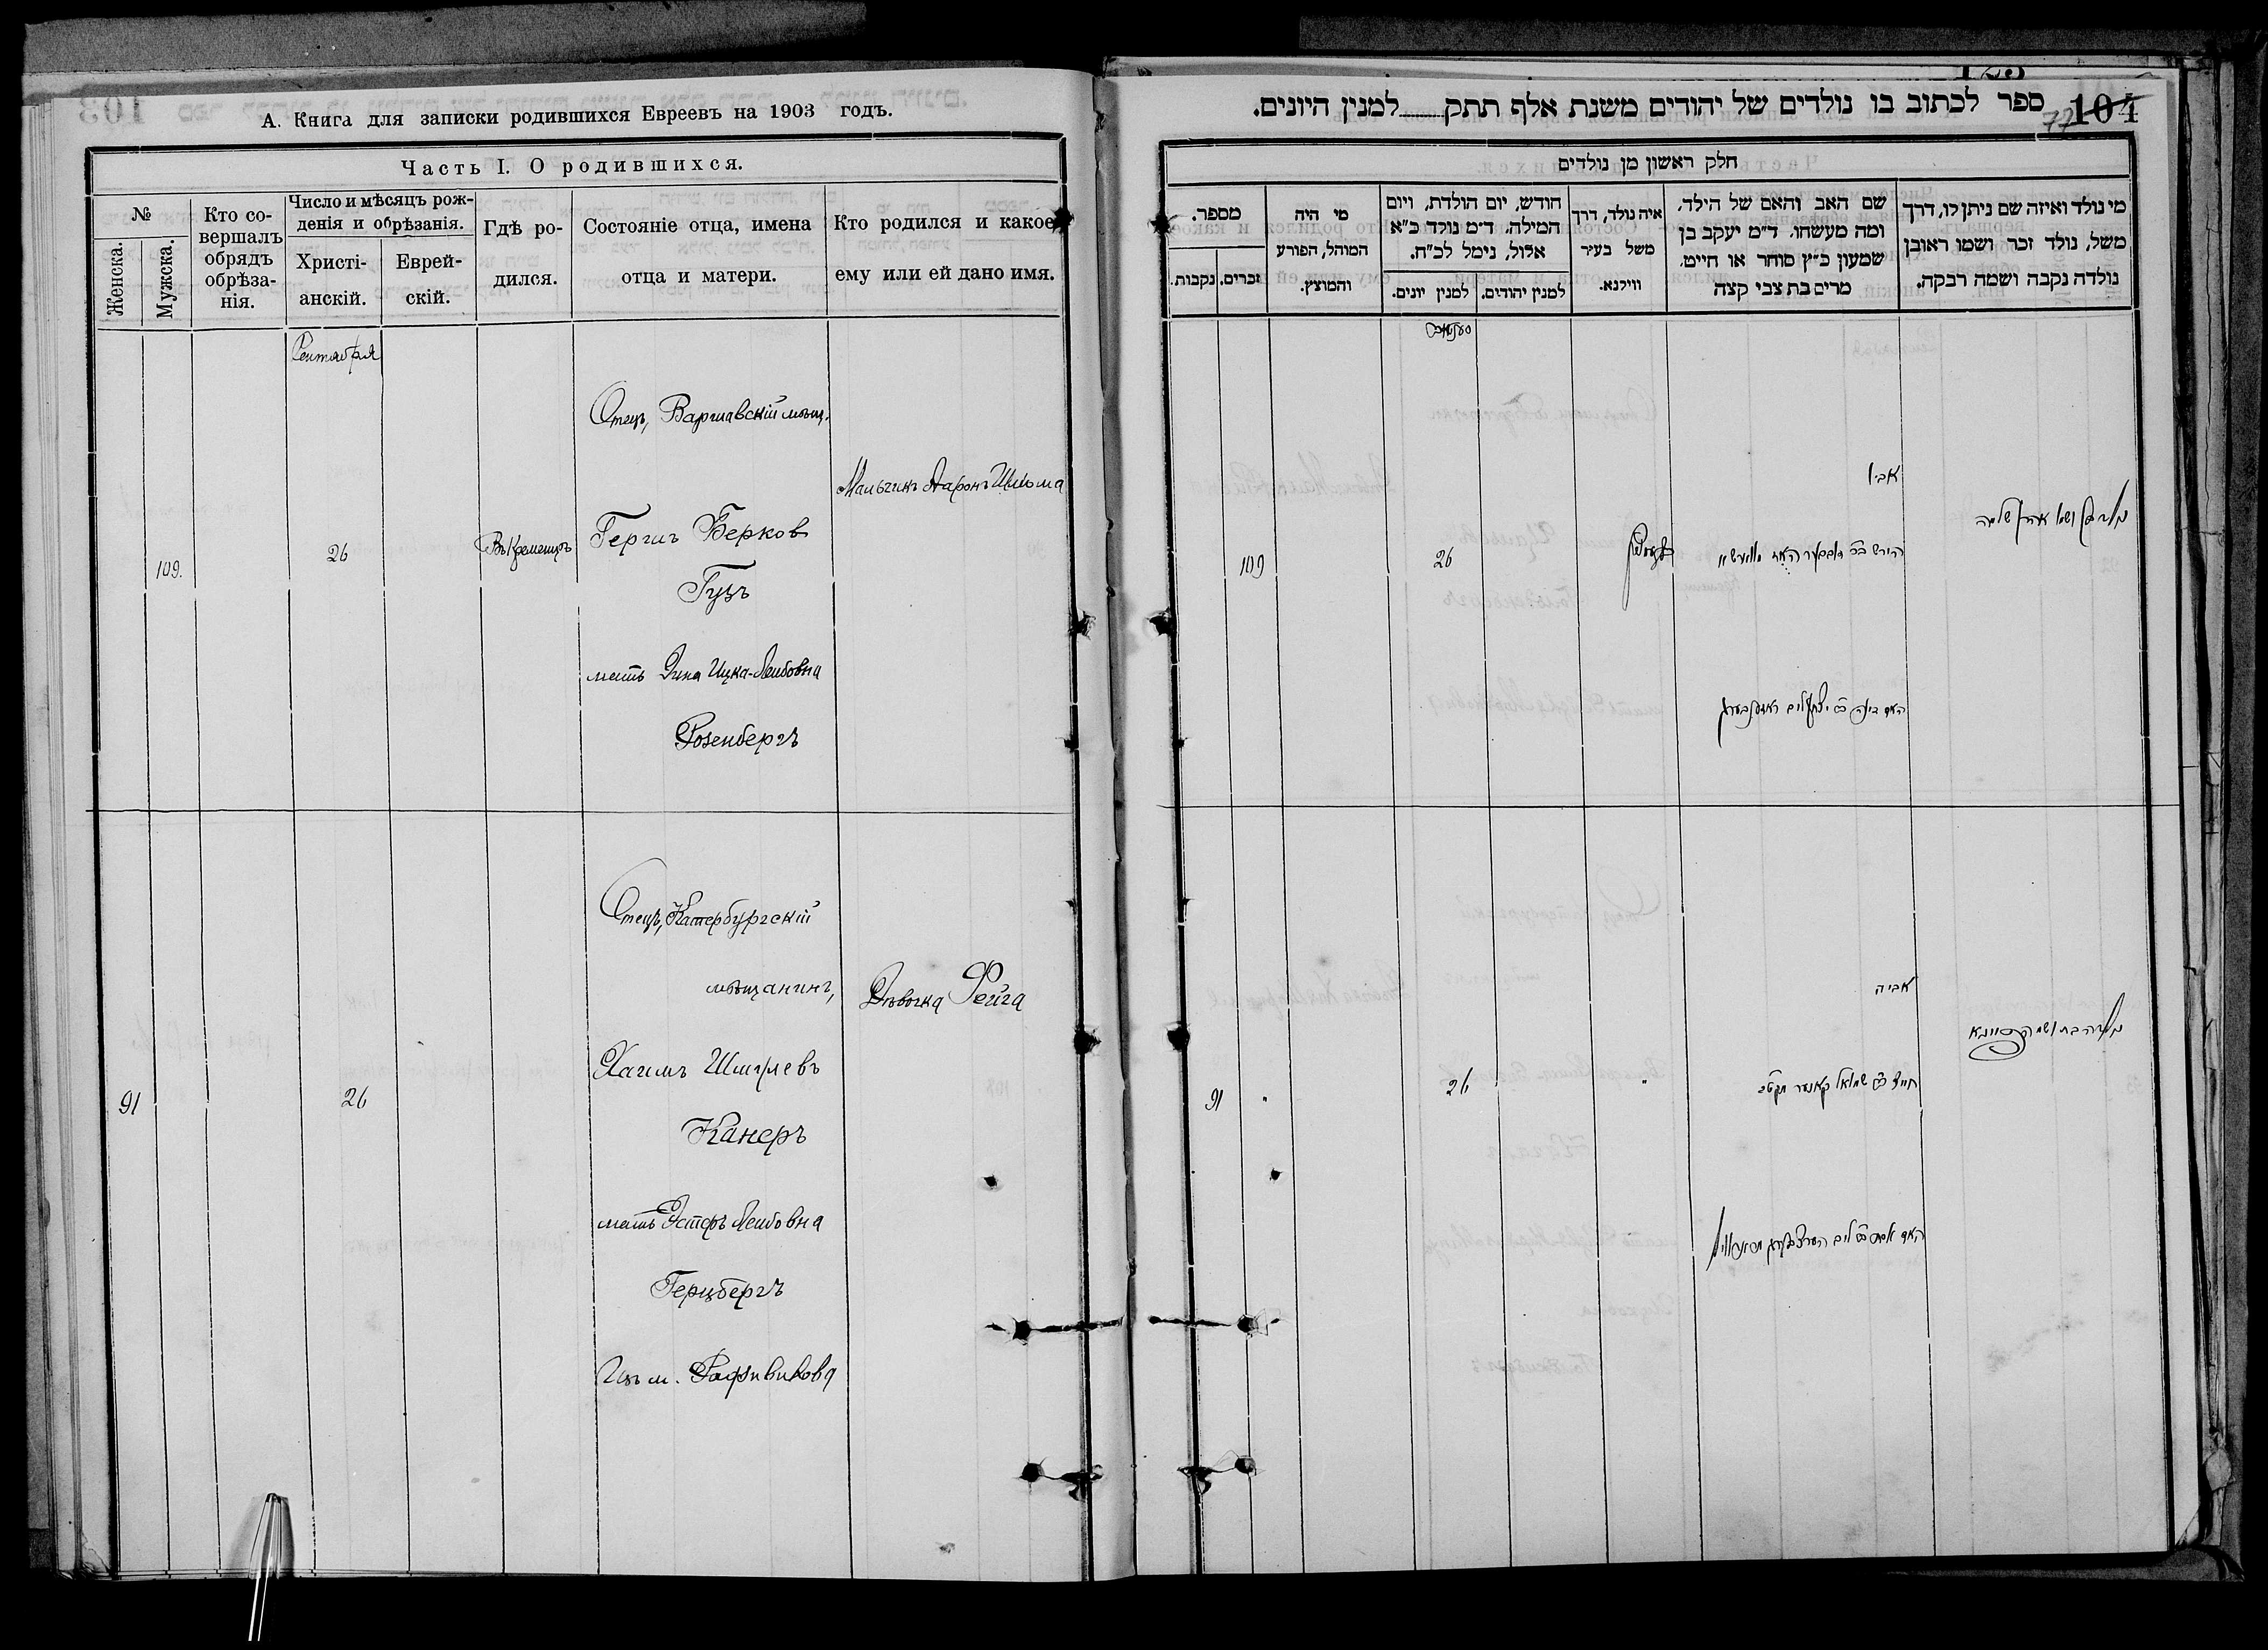 А. Книга для записки родившихся Евреевъ на 1903 годъ.
Часть I. О родившихся.
№
Женска.
Мужска.
Кто со-
вершалъ
обрядъ
обрѣза-
нія.
Число и мѣсяцъ рож-
денія и обрѣзанія.
Христі-
анскій.
Еврей-
скій.
Гдѣ ро-
дился.
Состояніе отца, имена
отца и матери.
Кто родился и какое
ему или ей дано имя.
Сентября
109.
26
Въ Кременцѣ
Отецъ, Варшавскій мѣщ.
Гершъ Берков
Гузъ
мать Дина Ицка-Лейбовна
Розенбергъ
Мальчикъ Ааронъ Шльома
91
26
Отецъ, Катербургскій
мѣщанинъ,
Хаимъ Шмулевъ
Канеръ
мать Эстеръ Лейбовна
Герцбергъ
Изъ м.
Дѣвочка Фейга
ספר לכתוב בו נולדים של יהודים משנת אלף תתק למנין היונים.
104
77
חלק ראשון מן נולדים
מספר.
זכרים.
נקבות.
מי היה
המוהל, הפורע
והמוצץ.
חודש, יום הולדת, ויום
המילה. ד״מ נולד כ״א
אלול, נימל לכ״ח.
למנין יונים.
למנין יהודים.
איה נולד, דרך
משל בעיר
ווילנא.
שם האב והאם של הילד,
ומה מעשהו. ד״מ יעקב בן
שמעון כ״ץ סוחר או חייט.
מרים בת צבי קצה
מי נולד ואיזה שם ניתן לו, דרך
משל, נולד זכר ושמו ראובן
נולדה נקבה ושמה רבקה.
109
26
אביו
נולד בן ושמו אהרן שלמה
האם דינה בת יצחק לייב ראזענבערג
91
"
26
"
אביה
חיים ב״ר שמואל קאנער
נולדה בת ושמה פייגא
האם אסתר בת לייב הערצבערג